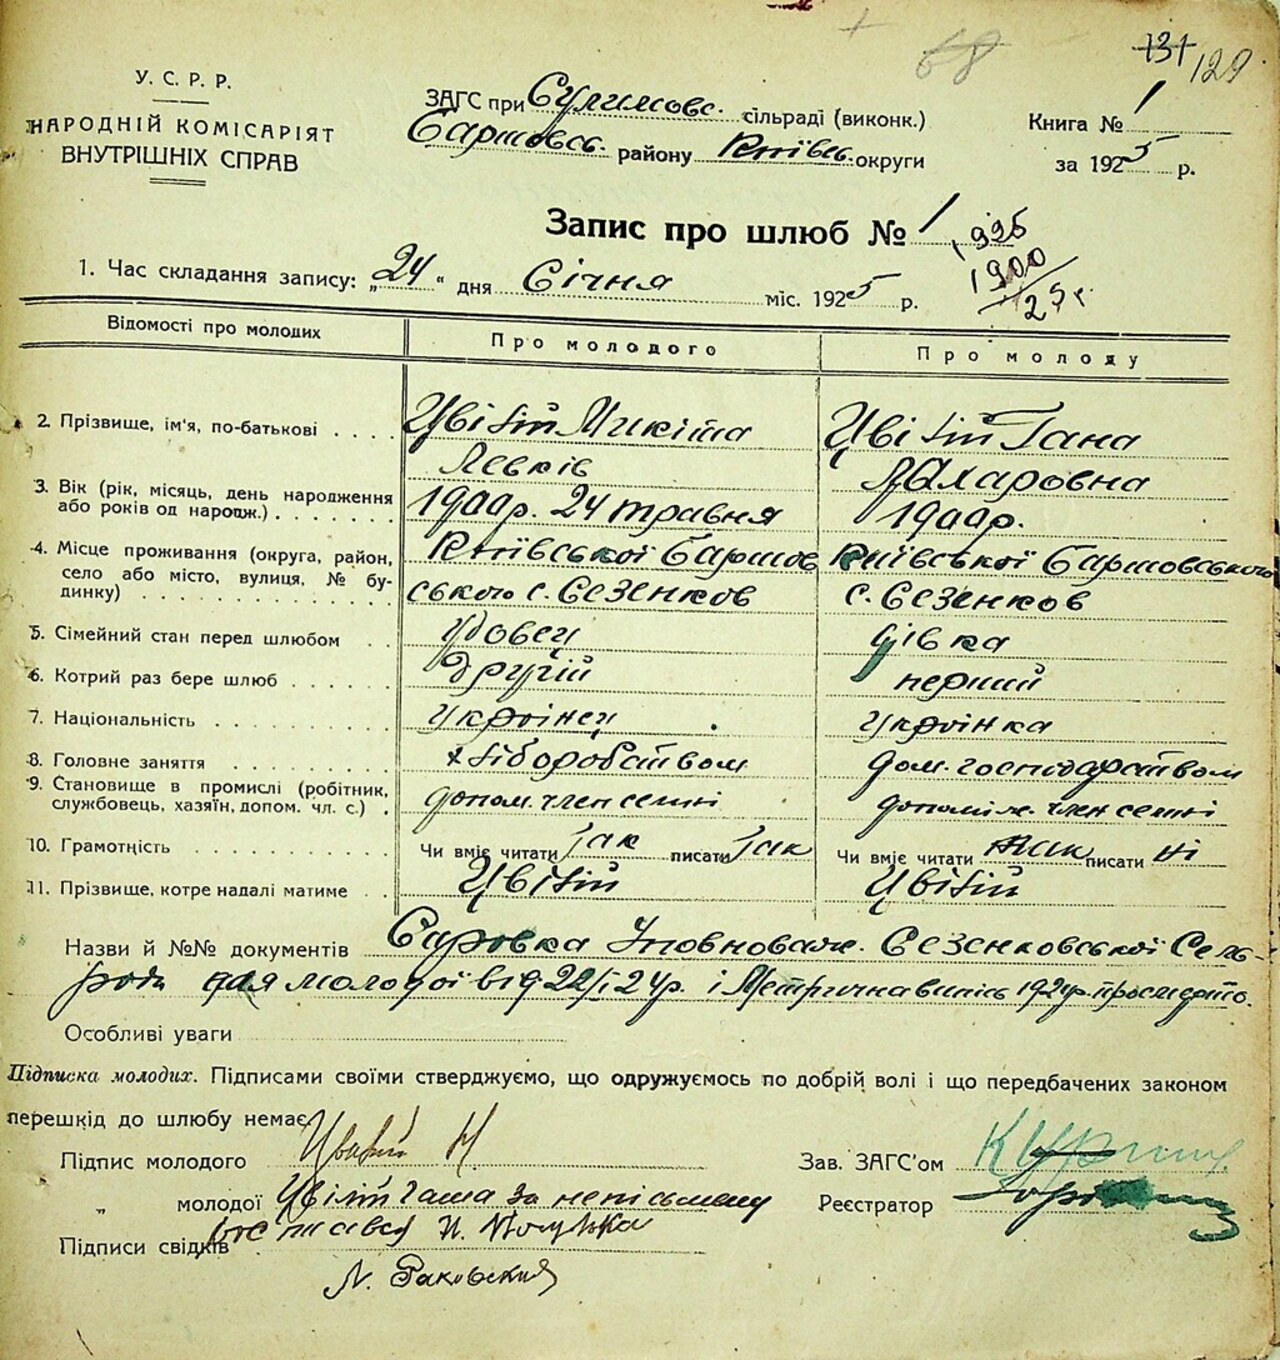 68 131 129
У. С. Р. Р.
НАРОДНІЙ КОМІСАРІЯТ
ВНУТРІШНІХ СПРАВ
ЗАГС при Сулимовс. сільраді (виконк.)
Баришовсь. району Київсь. округи
Книга № 1
за 1925 р.
Запис про шлюб № 1
1925
1900
25 г.
1. Час складання запису: „24“ дня Січня міс. 1925 р.
Відомості про молодих Про молодого Про молоду
2. Прізвище, ім'я, по-батькові . . . . Цвілій Микіта Цвілій Гана
Левків Захаровна
3. Вік (рік, місяць, день народження
або років од народж.) . . . . . . . 1900р. 24 травня 1900р.
4. Місце проживання (округа, район,
село або місто, вулиця, № бу-
динку) . . . . . . . . . . . . Київської Баришов Київської Баришовського
ського с. Сезенков с. Сезенков
5. Сімейний стан перед шлюбом . . Удовец дівка
6. Котрий раз бере шлюб . . . . . . другій перший
7. Національність . . . . . . . . . Українец Українка
8. Головне заняття . . . . . . . . хліборобством дом. господарством
9. Становище в промислі (робітник,
службовець, хазяїн, допом. чл. с.) . допом. член семні допоміж. член семні
10. Грамотність . . . . . . . . . . Чи вміє читати Так писати Так Чи вміє читати Так писати Ні
11. Прізвище, котре надалі матиме . . Цвілій Цвілій
Назви й №№ документів Сезенковської Сель-
ради для молодої від 22/I 24р. і Метрична випись 192
Особливі уваги
Підписка молодих. Підписами своїми стверджуємо, що одружуємось по добрій волі і що передбачених законом
перешкід до шлюбу немає
Підпис молодого Цвілій М
„ молодої Цвілій Гана за неписьмену
Підписи свідків
Зав. ЗАГС'ом
Реєстратор